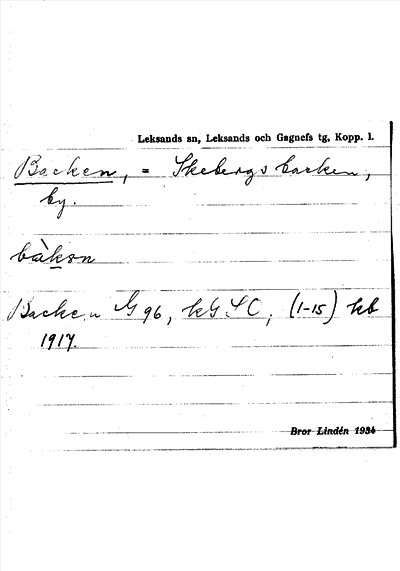 Leksands sn, Leksands och Gagnefs tg, Kopp. l.
Backen, = Skebergsbacken,
by.
bàkɘn
Backen G 96, kG SC, (1-15) kb
1917.
Bror Lindén 1934